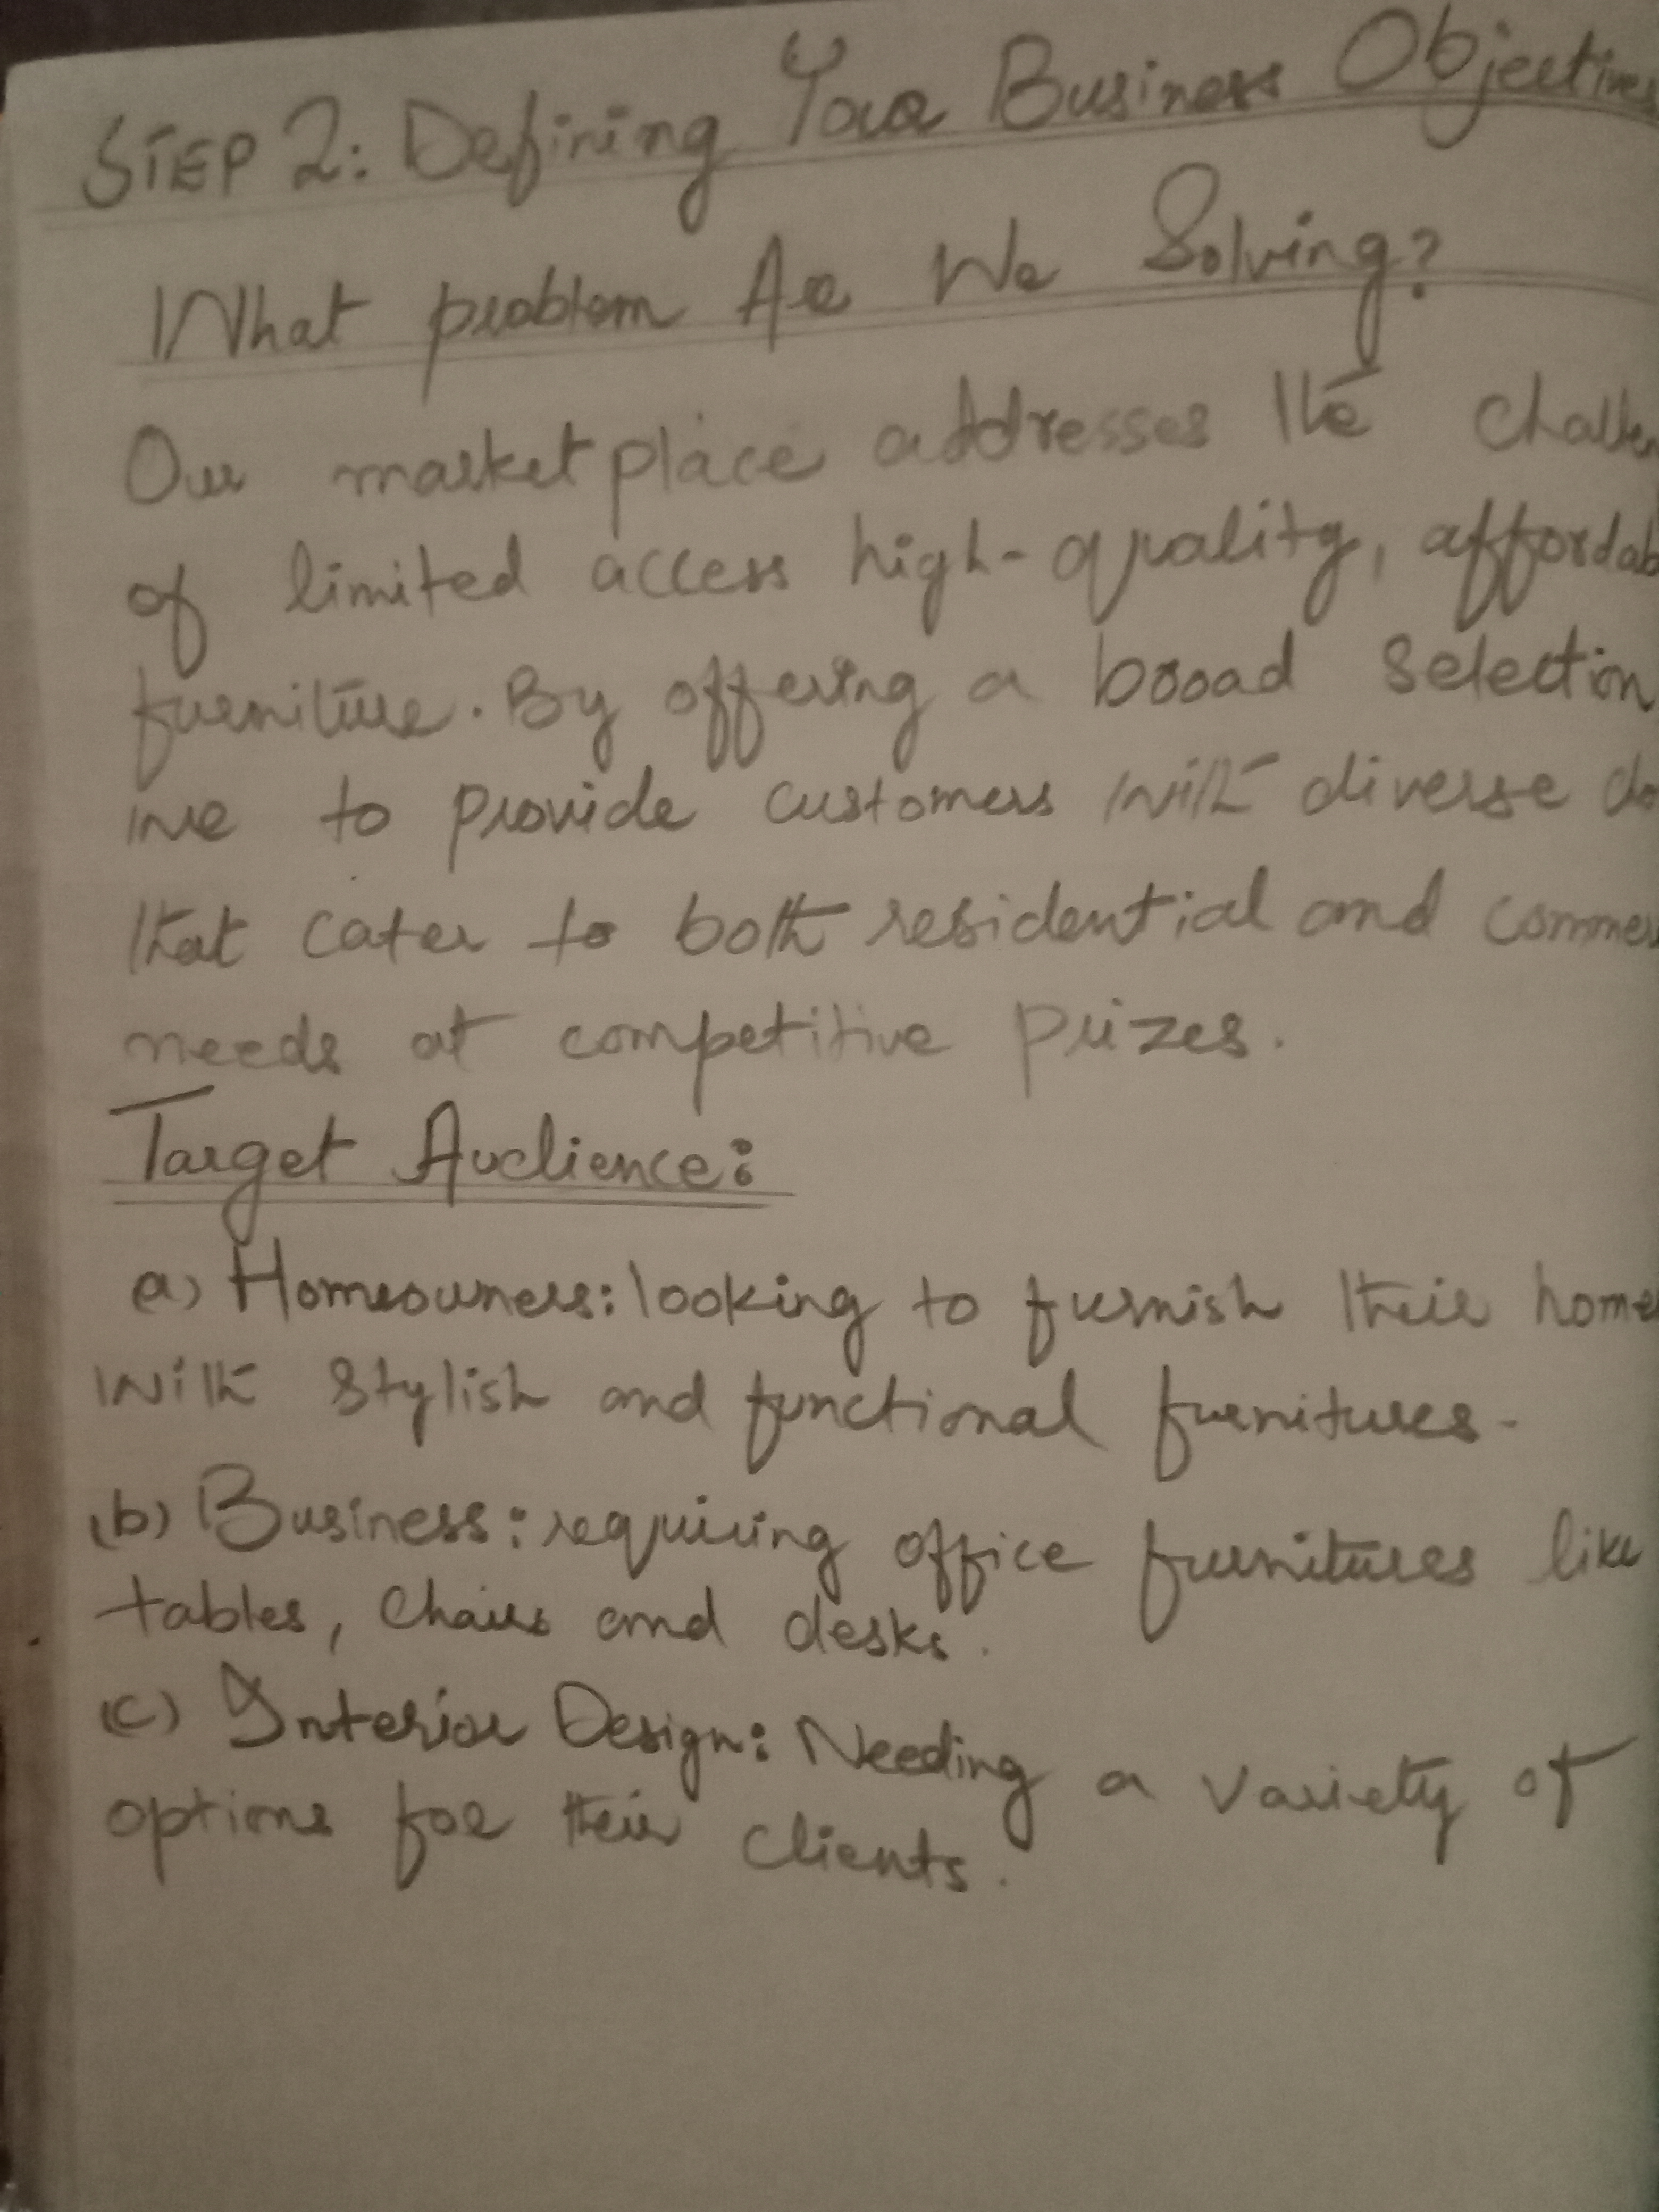 STEP 2: Defining Your Business Objectives
What problem Are We Solving?
Our marketplace addresses the
of limited access high-quality,
furniture. By offering a broad selection
we to provide customers with diverse
that cater to both residential and
needs at competitive prizes.
Target Audience:
a) Homeowners: looking to furnish their home
with stylish and functional furnitures.
(b) Business: requiring office furnitures like
tables, chairs and desks.
(c) Interior Design: Needing a variety of
options for their clients.